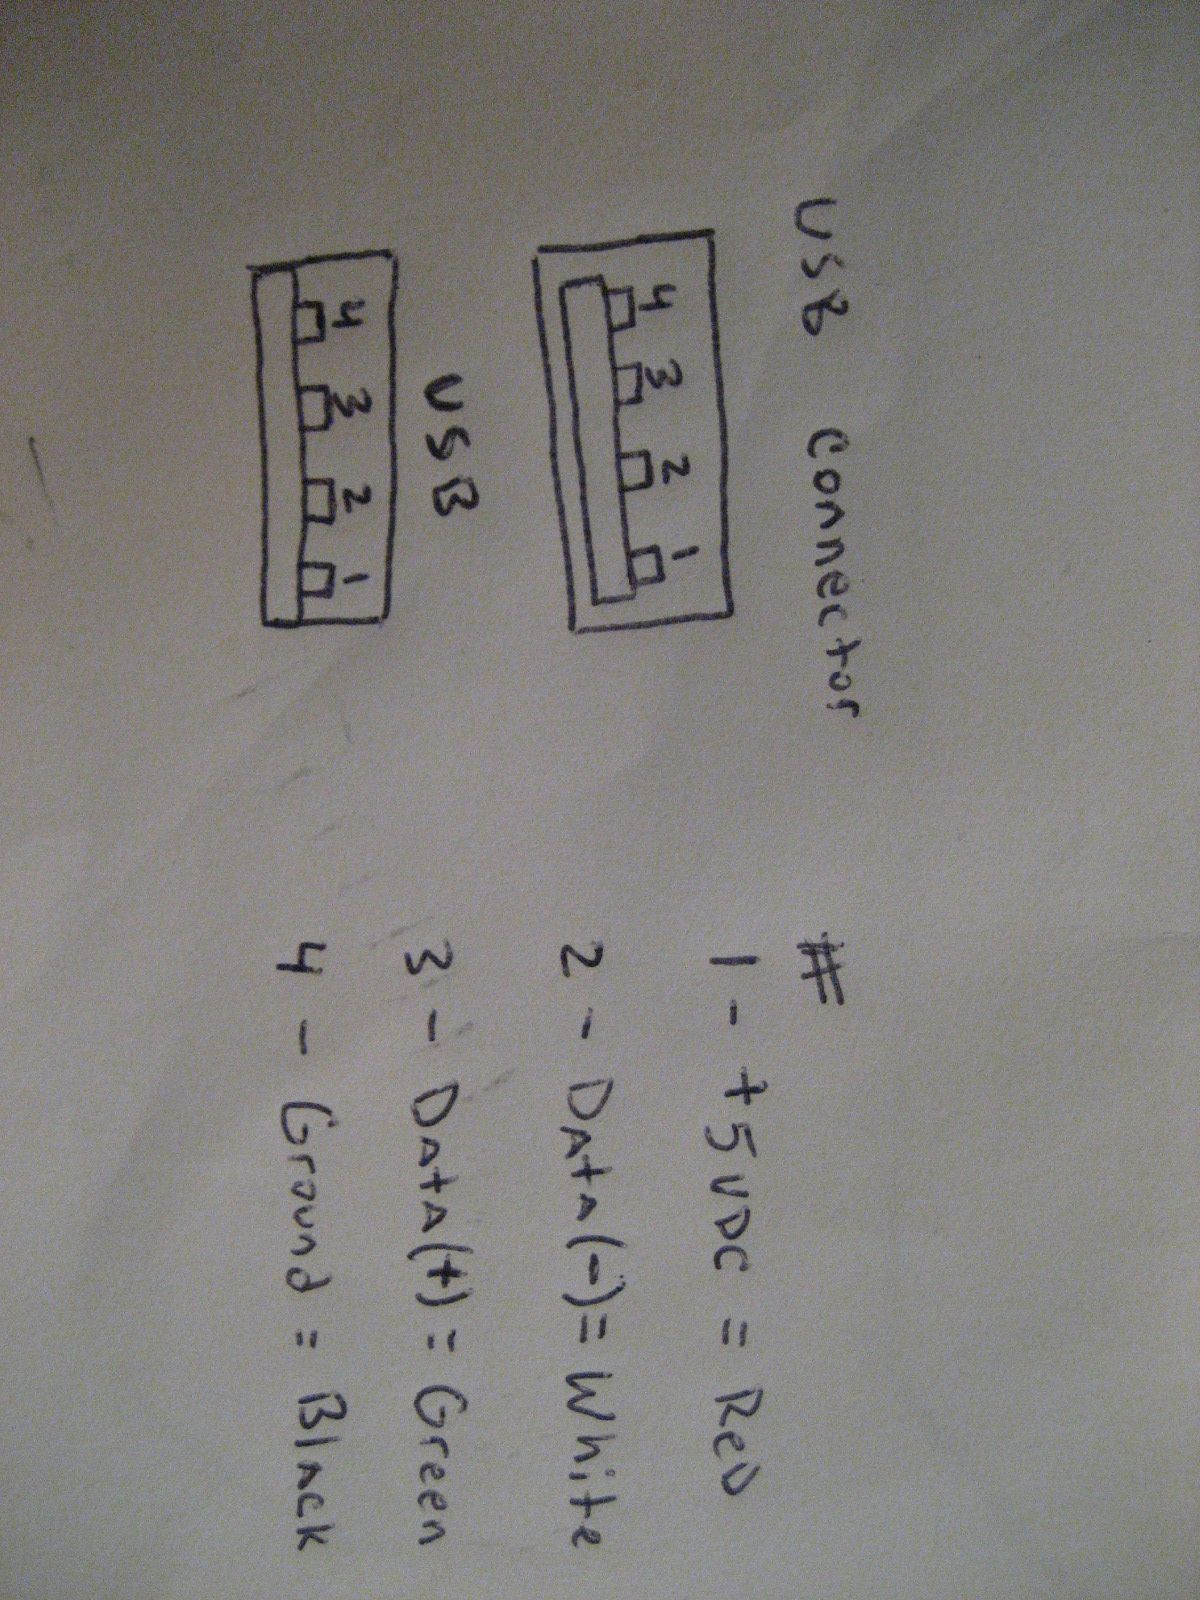 USB Connector
4 3 2 1
USB
4 3 2 1
#
1 - +5VDC = Red
2 - Data(-) = White
3 - Data(+) = Green
4 - Ground = Black